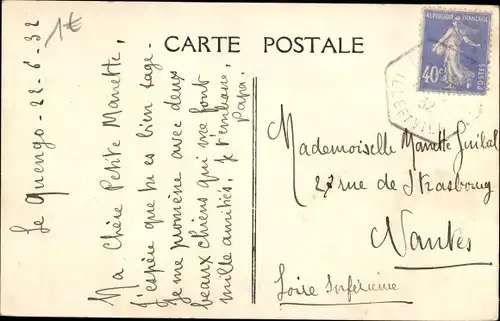 1€
CARTE POSTALE
REPUBLIQUE FRANCAISE
40c
POSTES
Le Quengo - 22-6-32
Ma Chère Petite Manette,
J'espère que tu es bien sage.
Je me promène avec deux
beaux chiens qui me font
mille amitiés. Je t'embrasse,
Papa.
Mademoiselle Manette
27 rue de Strasbourg
Nantes
Loire Inférieure